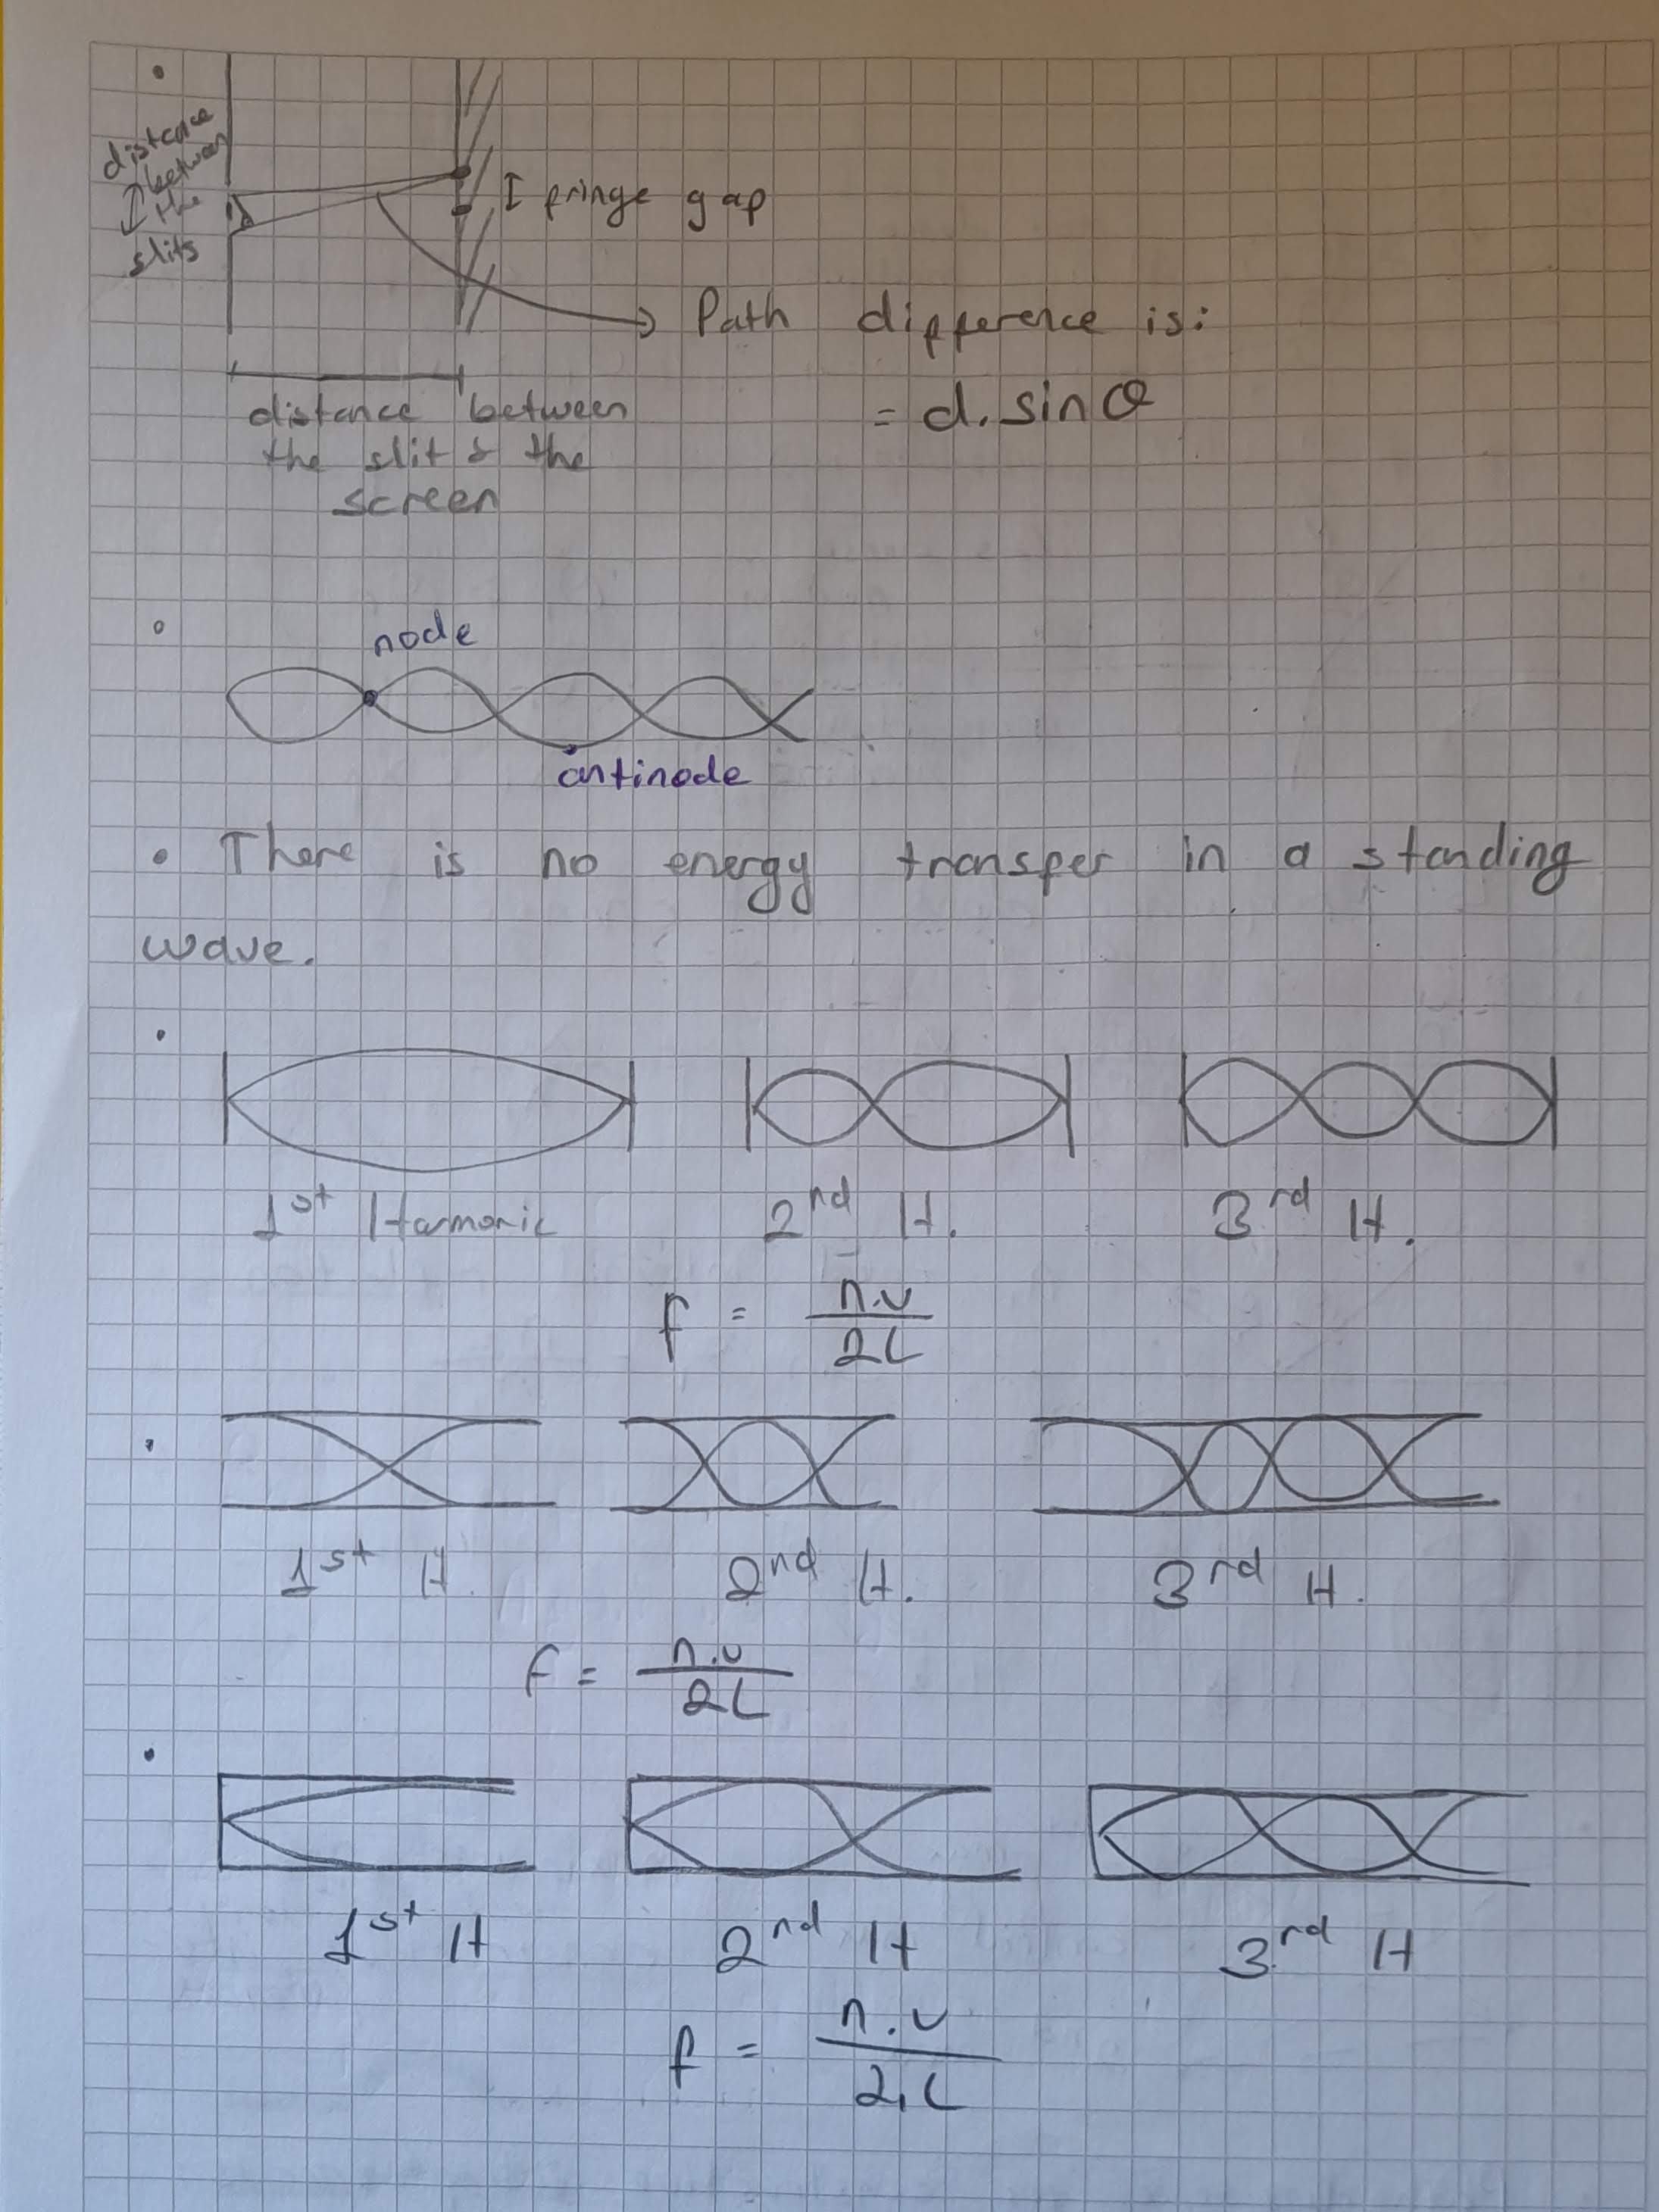 distance
between
the
slits
I fringe gap
Path difference is:
= d. sin θ
distance between
the slit & the
screen
node
antinode
• There is no energy transfer in a standing
wave.
1st Harmonic 2nd H. 3rd H.
f = n.v / 2L
1st H. 2nd H. 3rd H.
f = n.v / 2L
1st H 2nd H 3rd H
f = n.v / 2.L